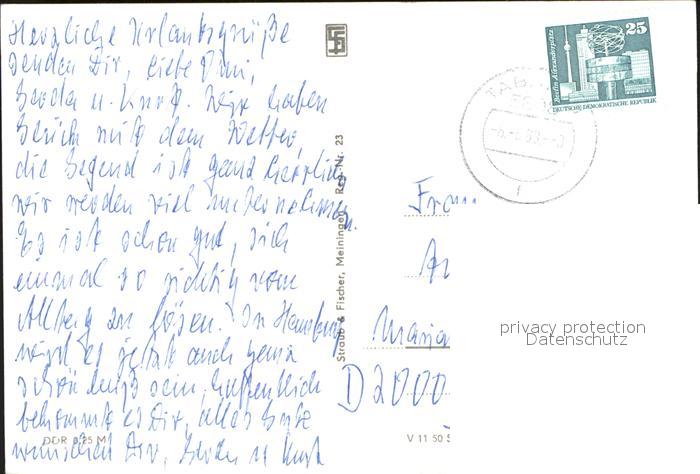 Herzliche Urlaubsgrüße
senden Dir, liebe Omi,
Gerda u. Kurt. Wir haben
Glück mit dem Wetter,
die Gegend ist ganz herrlich
wir werden viel unternehmen.
Es ist schon gut, sich
einmal so richtig vom
Alltag zu lösen. In Hamburg
wird es jetzt auch ganz
schön heiß sein, hoffentlich
bekommt es Dir, alles Gute
wünschen Dir, Gerda u Kurt
DDR 0,25 M
Straub & Fischer, Meiningen Reg.-Nr. 23
V 11 50
Berlin, Alexanderplatz
25
DEUTSCHE DEMOKRATISCHE REPUBLIK
TAB
Frau
Maria
D 2000
privacy protection
Datenschutz